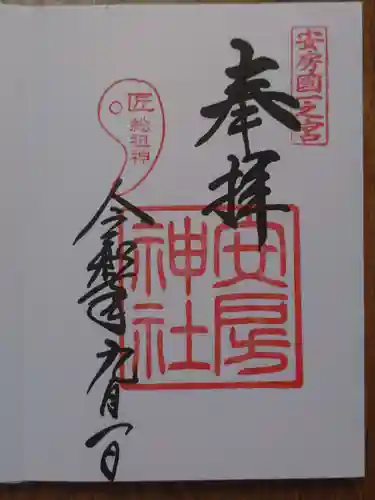 安房國一之宮
奉拝
安房神社
匠総祖神
令和元年九月一日